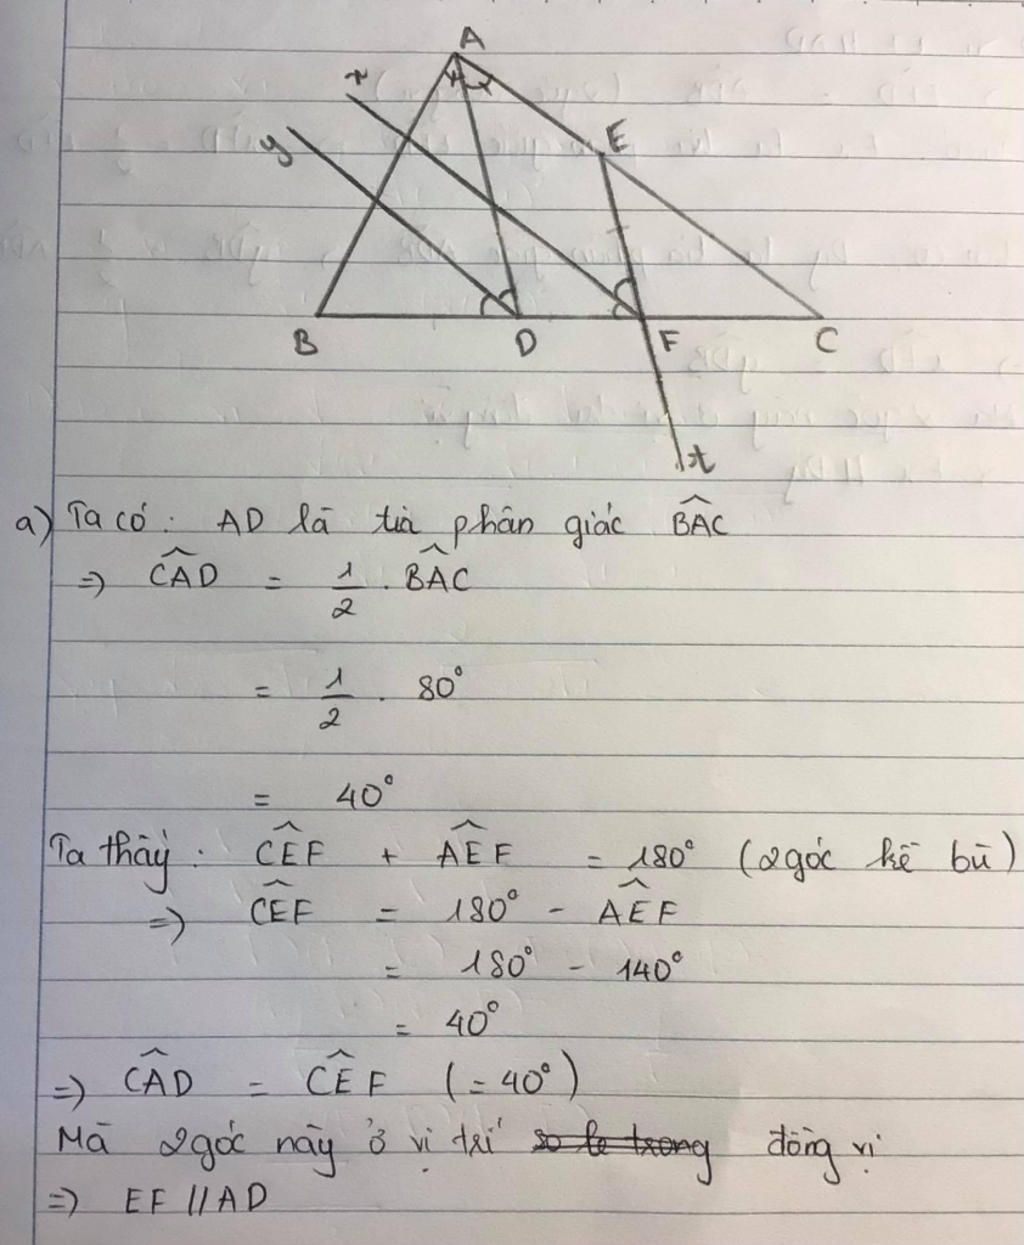 A
x
E
y
B
D
F
C
t
a) Ta có: AD là tia phân giác $\widehat{BAC}$
=> $\widehat{CAD}$ = $\frac{1}{2}$ . $\widehat{BAC}$
= $\frac{1}{2}$ . 80°
= 40°
Ta thấy: $\widehat{CEF}$ + $\widehat{AEF}$ = 180° (2 góc kề bù)
=> $\widehat{CEF}$ = 180° - $\widehat{AEF}$
= 180° - 140°
= 40°
=> $\widehat{CAD}$ = $\widehat{CEF}$ (= 40°)
Mà 2 góc này ở vị trí so le trong đồng vị
=> EF // AD